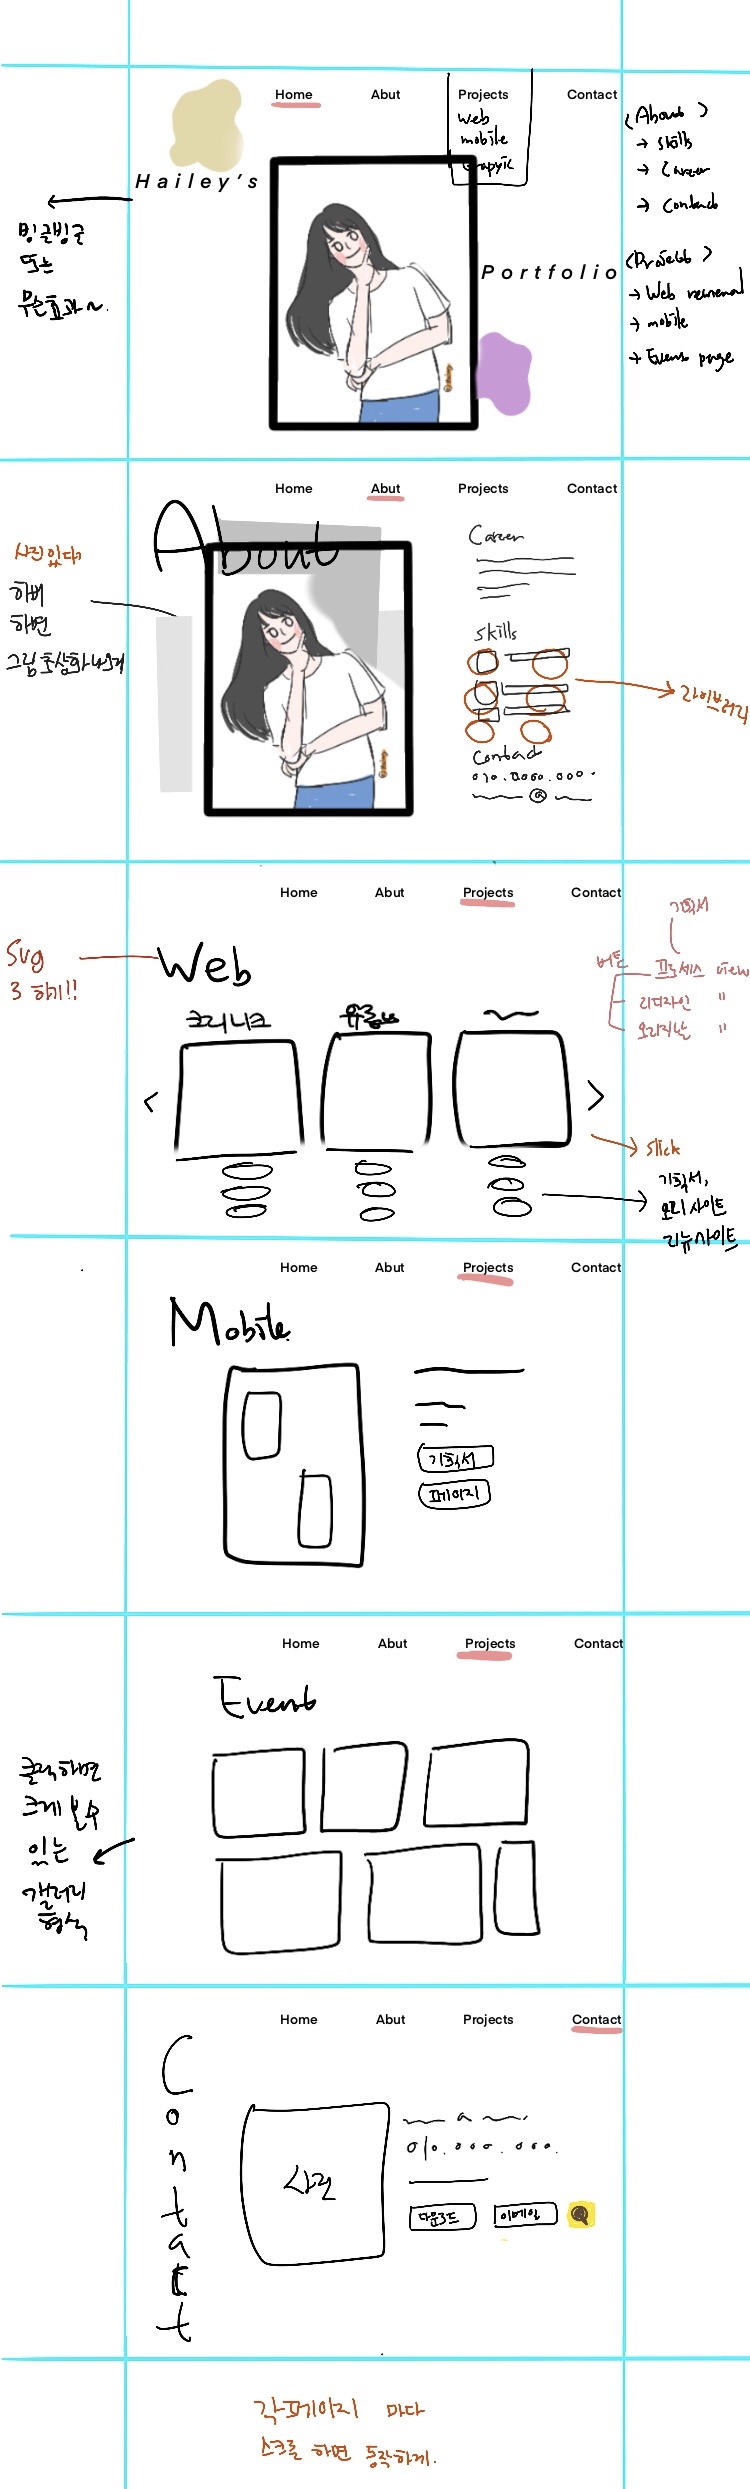 Home Abut Projects Contact
Web
mobile
Grapyic
Hailey's
Portfolio
빙글빙글
또는
무슨효과~.
<About>
→ skills
→ Career
→ Contact
<Project>
→ Web renewal
→ mobile
→ Event page
Home Abut Projects Contact
About
사진있다
하버
하면
그림 초상화나오게
Career
skills
라이브러리
Contact
010.0000.000.
@
Home Abut Projects Contact
Svg
3 하기!!
Web
크리니크
기획서
버튼
프로세스 view
리디자인 "
오리지날 "
< >
slick
기획서,
오리사이트
리뉴사이트
Home Abut Projects Contact
Mobile
기획서
페이지
Home Abut Projects Contact
Event
클릭하면
크게 볼수
있는
갤러리
형식
Home Abut Projects Contact
Contact
사진
010.000.000.
다운로드 이메일
각페이지 마다
스크롤 하면 동작하게.